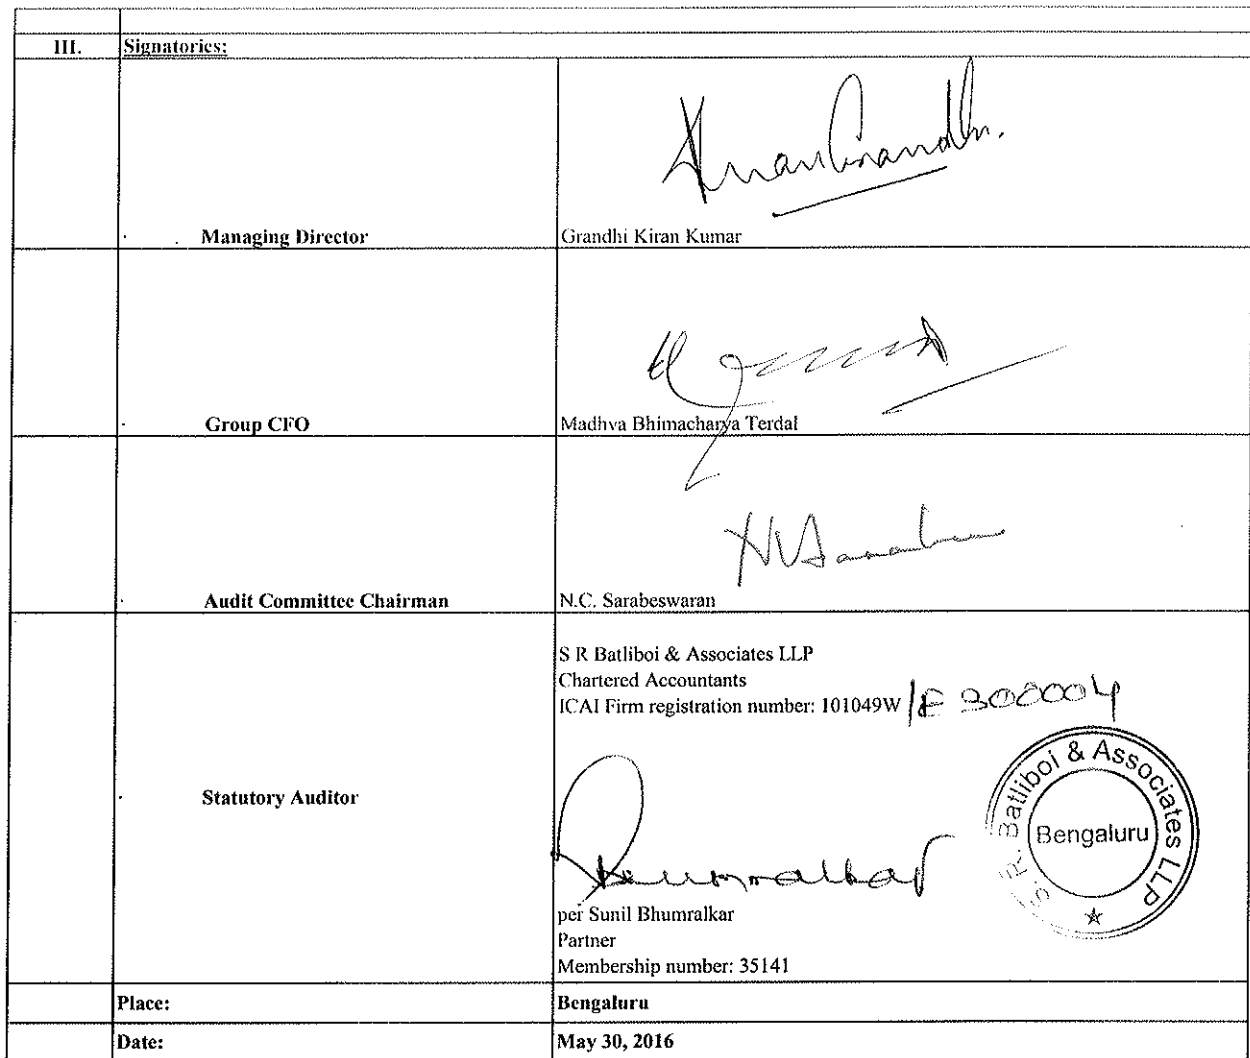 III. Signatories:
Managing Director Grandhi Kiran Kumar
Group CFO Madhva Bhimacharya Terdal
Audit Committee Chairman N.C. Sarabeswaran
S R Batliboi & Associates LLP
Chartered Accountants
ICAI Firm registration number: 101049W /E 300004
Statutory Auditor
S. R. Batliboi & Associates LLP
Bengaluru
per Sunil Bhumralkar
Partner
Membership number: 35141
Place: Bengaluru
Date: May 30, 2016